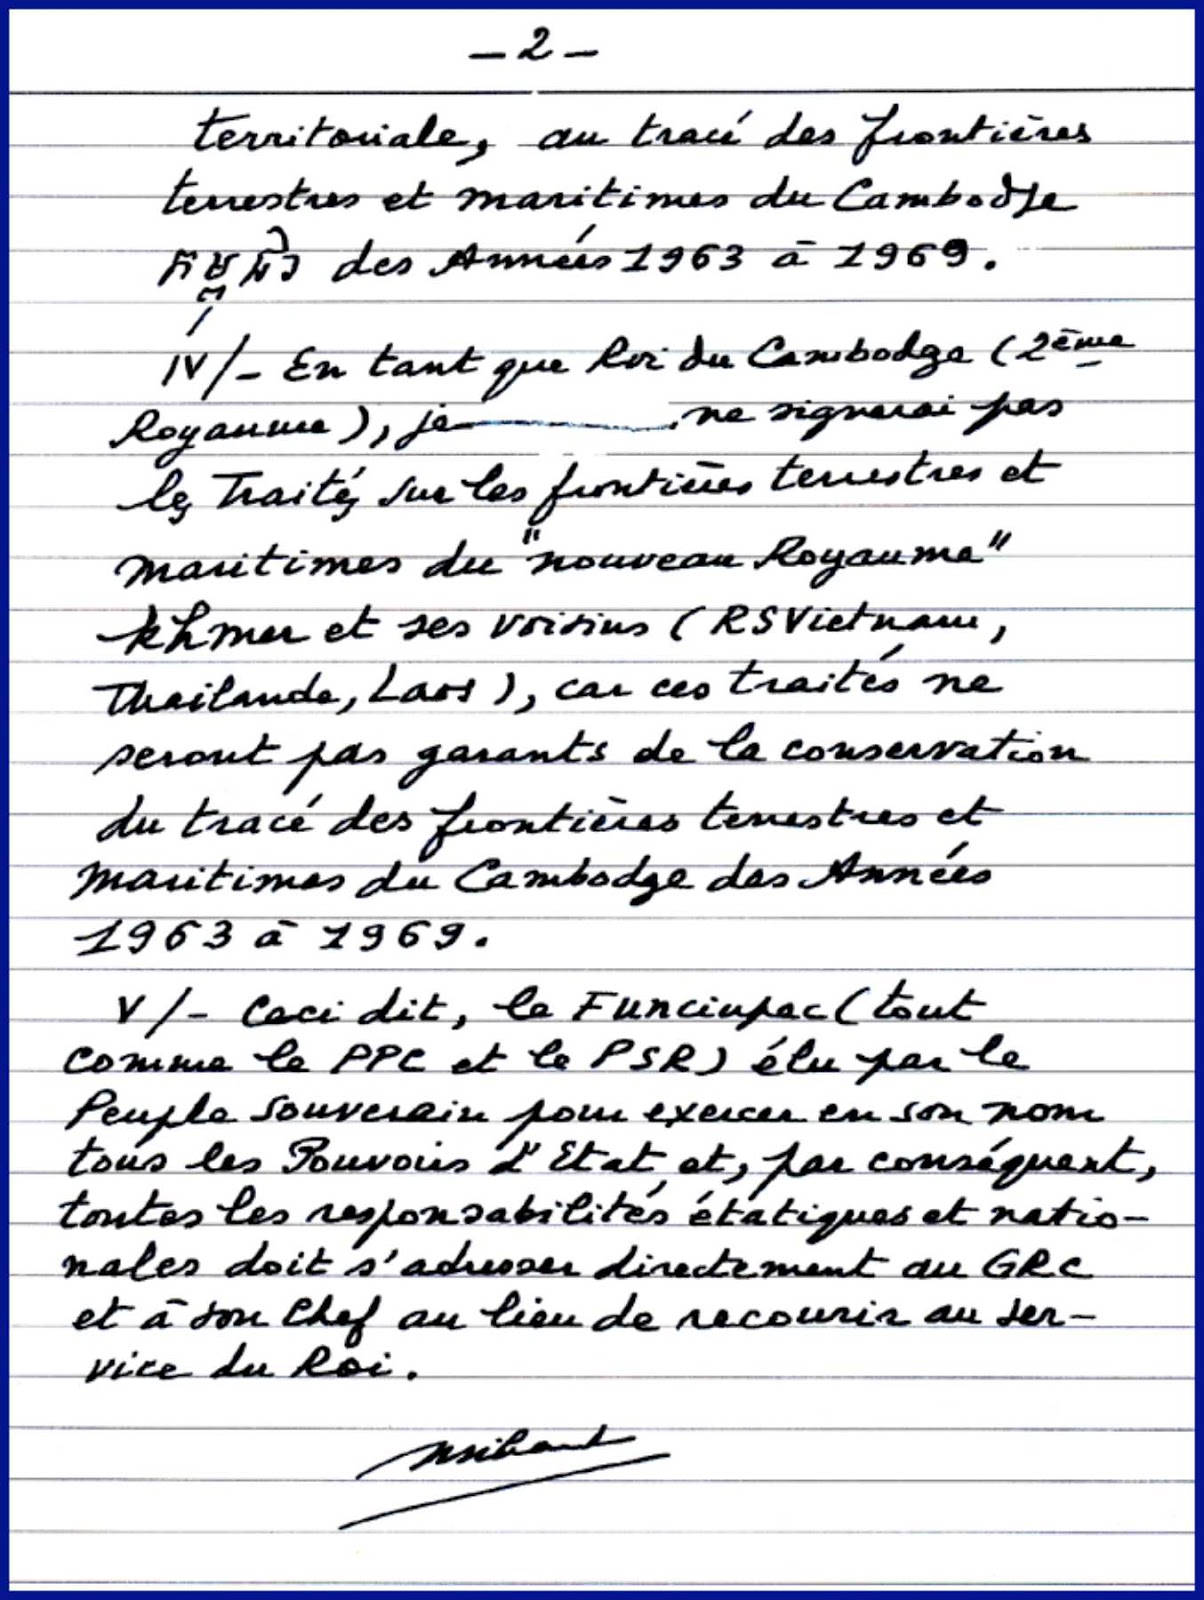 - 2 -
territoriale, au tracé des frontières
terrestres et maritimes du Cambodge
des Années 1963 à 1969.
IV/- En tant que Roi du Cambodge (2ème
Royaume), je ne signerai pas
les Traités sur les frontières terrestres et
maritimes du "nouveau Royaume"
khmer et ses voisins (RSVietnam,
Thaïlande, Laos), car ces traités ne
seront pas garants de la conservation
du tracé des frontières terrestres et
maritimes du Cambodge des Années
1963 à 1969.
V/- Ceci dit, le Funcinpec (tout
comme le PPC et le PSR) élu par le
Peuple Souverain pour exercer en son nom
tous les Pouvoirs d'Etat et, par conséquent,
toutes les responsabilités étatiques et natio-
nales doit s'adresser directement au GRC
et à son Chef au lieu de recourir au ser-
vice du Roi.